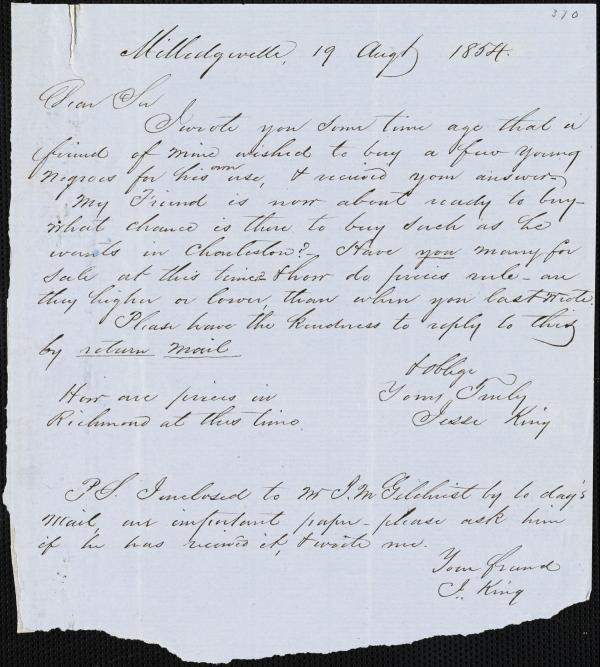 370
Milledgeville, 19 Augt 1854.
Dear Sir
I wrote you some time ago that a
friend of mine wished to buy a few young
negroes for his own use, & received your answer
My Friend is now about ready to buy-
what chance is there to buy such as he
wants in Charleston? Have you many for
sale at this time? & how do prices rule - are
they higher or lower, than when you last wrote.
Please have the kindness to reply to this
by return mail
& oblige
How are prices in Yours Truly
Richmond at this time. Jesse King
P.S. I inclosed to Mr J. M Gilchrist by to day's
mail, an important paper - please ask him
if he has receivd it, & write me.
Your friend
J. King